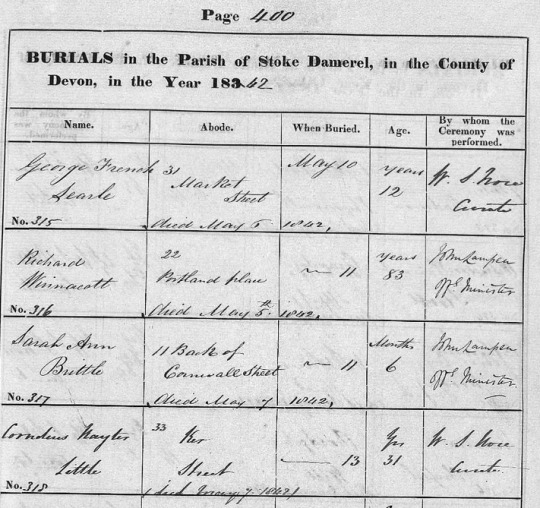 Page 400
BURIALS in the Parish of Stoke Damerel, in the County of
Devon, in the Year 18342
Name. Abode. When Buried. Age. By whom the Ceremony was performed.
George French 31 May 10 years W. S.
Searle Market Street 12 Curate
No. 315 died May 5 1842,
Richard 22 years John Lampen
Winnacott Portland place — 11 83 Offg Minister
No. 316 died May 5th 1842,
Sarah Ann 11 Back of Months John Lampen
Brittle Cornwall Street — 11 6 Offg Minister
No. 317 died May 7 1842,
Cornelius Hayter 33 Ker Yrs W. S.
Little Street — 13 31 Curate
No. 318 May 7. 1842